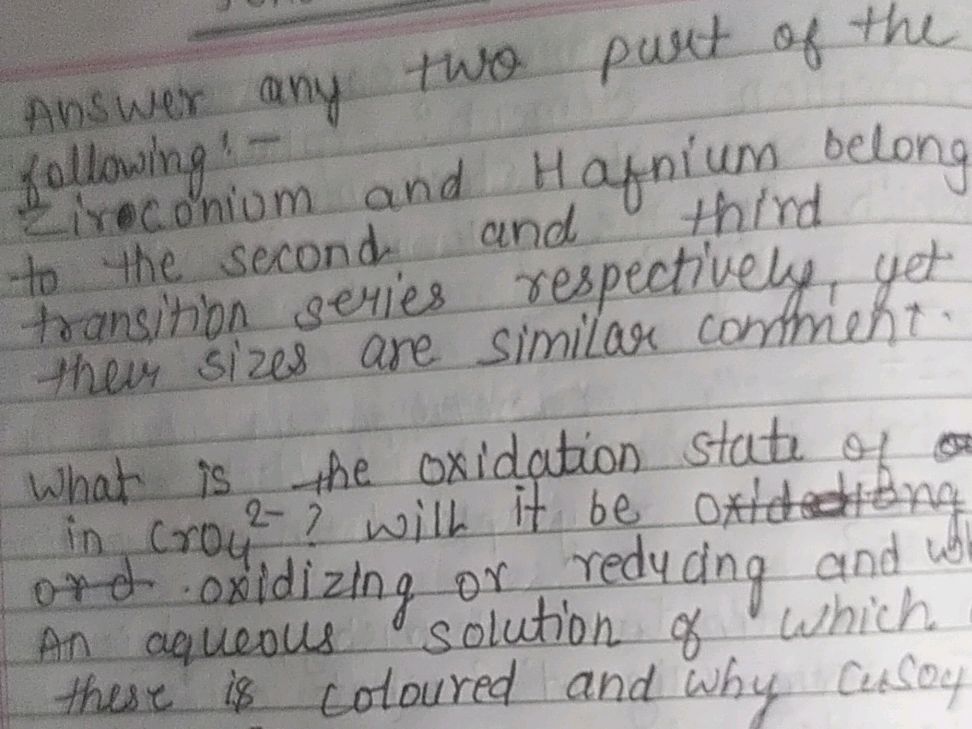 Answer any two part of the
following :-
Zirconium and Hafnium belong
to the second and third
transition series respectively, yet
their sizes are similar comment.
What is the oxidation state of
in CrO4 2- ? will it be
oxidizing or reducing and
An aqueous solution of which
these is coloured and why CuSO4